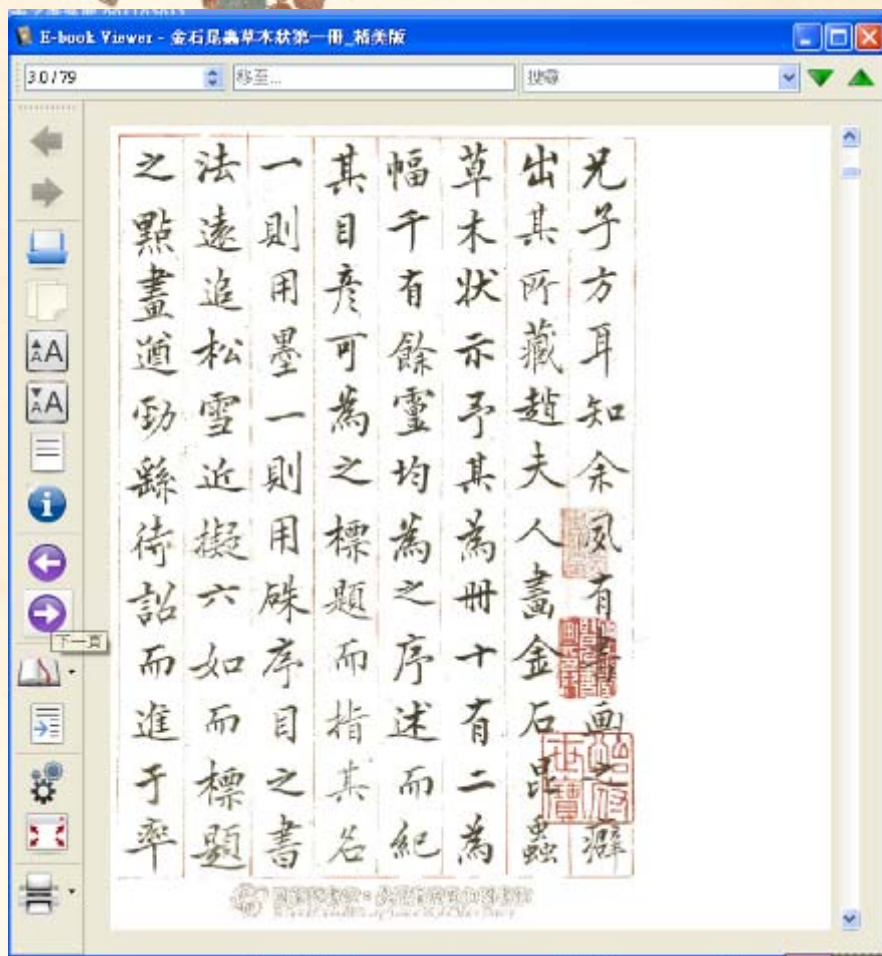 E-book Viewer - 金石昆蟲草木狀第一冊_精美版
3.0 / 79
移至...
搜尋
下一頁
兄子方耳知余夙有書画之癖
出其所藏趙夫人畫金石昆蟲
草木狀示予其為冊十有二為
幅千有餘靈均為之序述而紀
其目彦可為之標題而指其名
一則用墨一則用硃序目之書
法遠追松雪近擬六如而標題
之點畫遒勁繇待詔而進于率